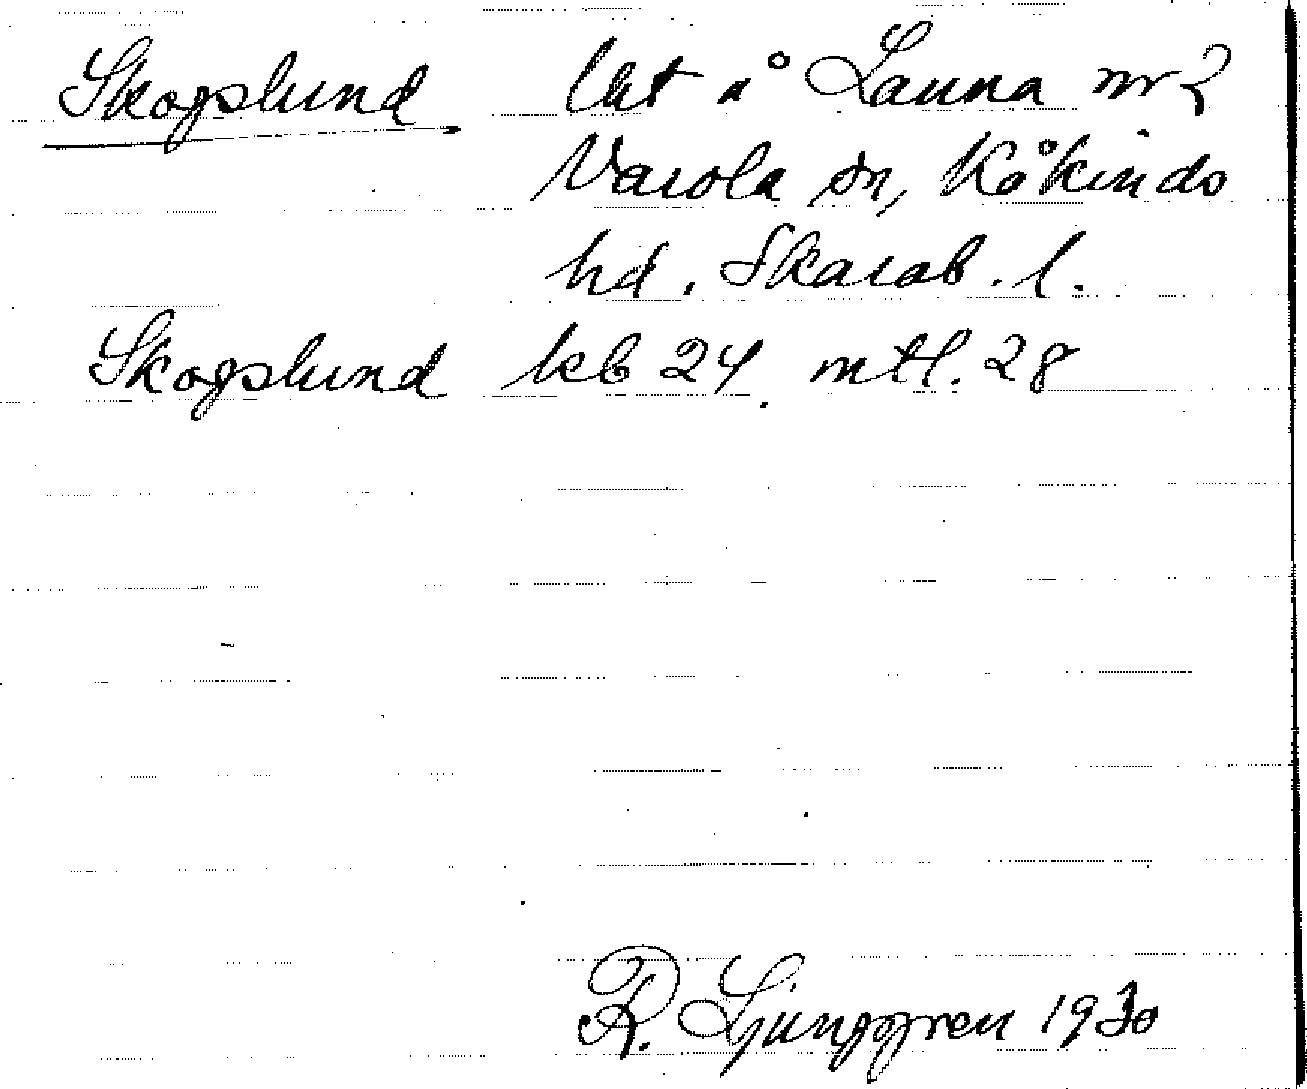 Skogslund lht å Launa nr 2
Varola sn, Kåkinds
hd. Skarab. l.
Skogslund kb 24 mtl. 28
R. Ljunggren 1930